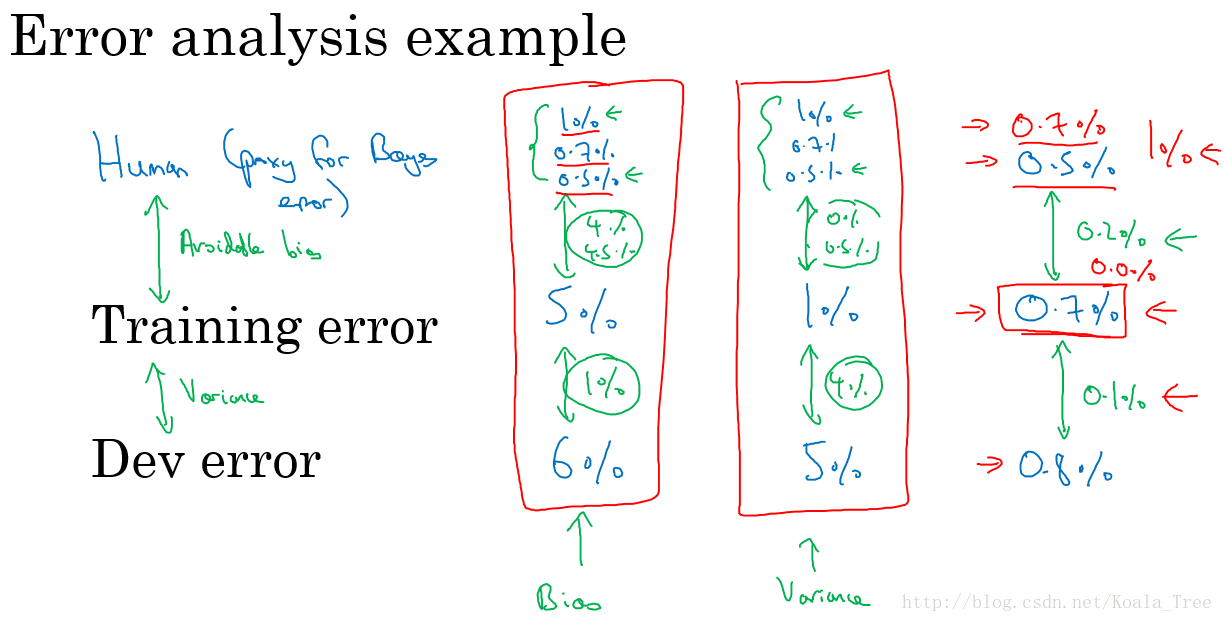 Error analysis example
Human (proxy for Bayes error)
Avoidable bias
Training error
Variance
Dev error
1%
0.7%
0.5%
4%
4.5%
5%
1%
6%
Bias
1%
0.7%
0.5%
0%
0.5%
1%
4%
5%
Variance
0.7%
0.5%
1%
0.2%
0.0%
0.7%
0.1%
0.8%
http://blog.csdn.net/Koala_Tree